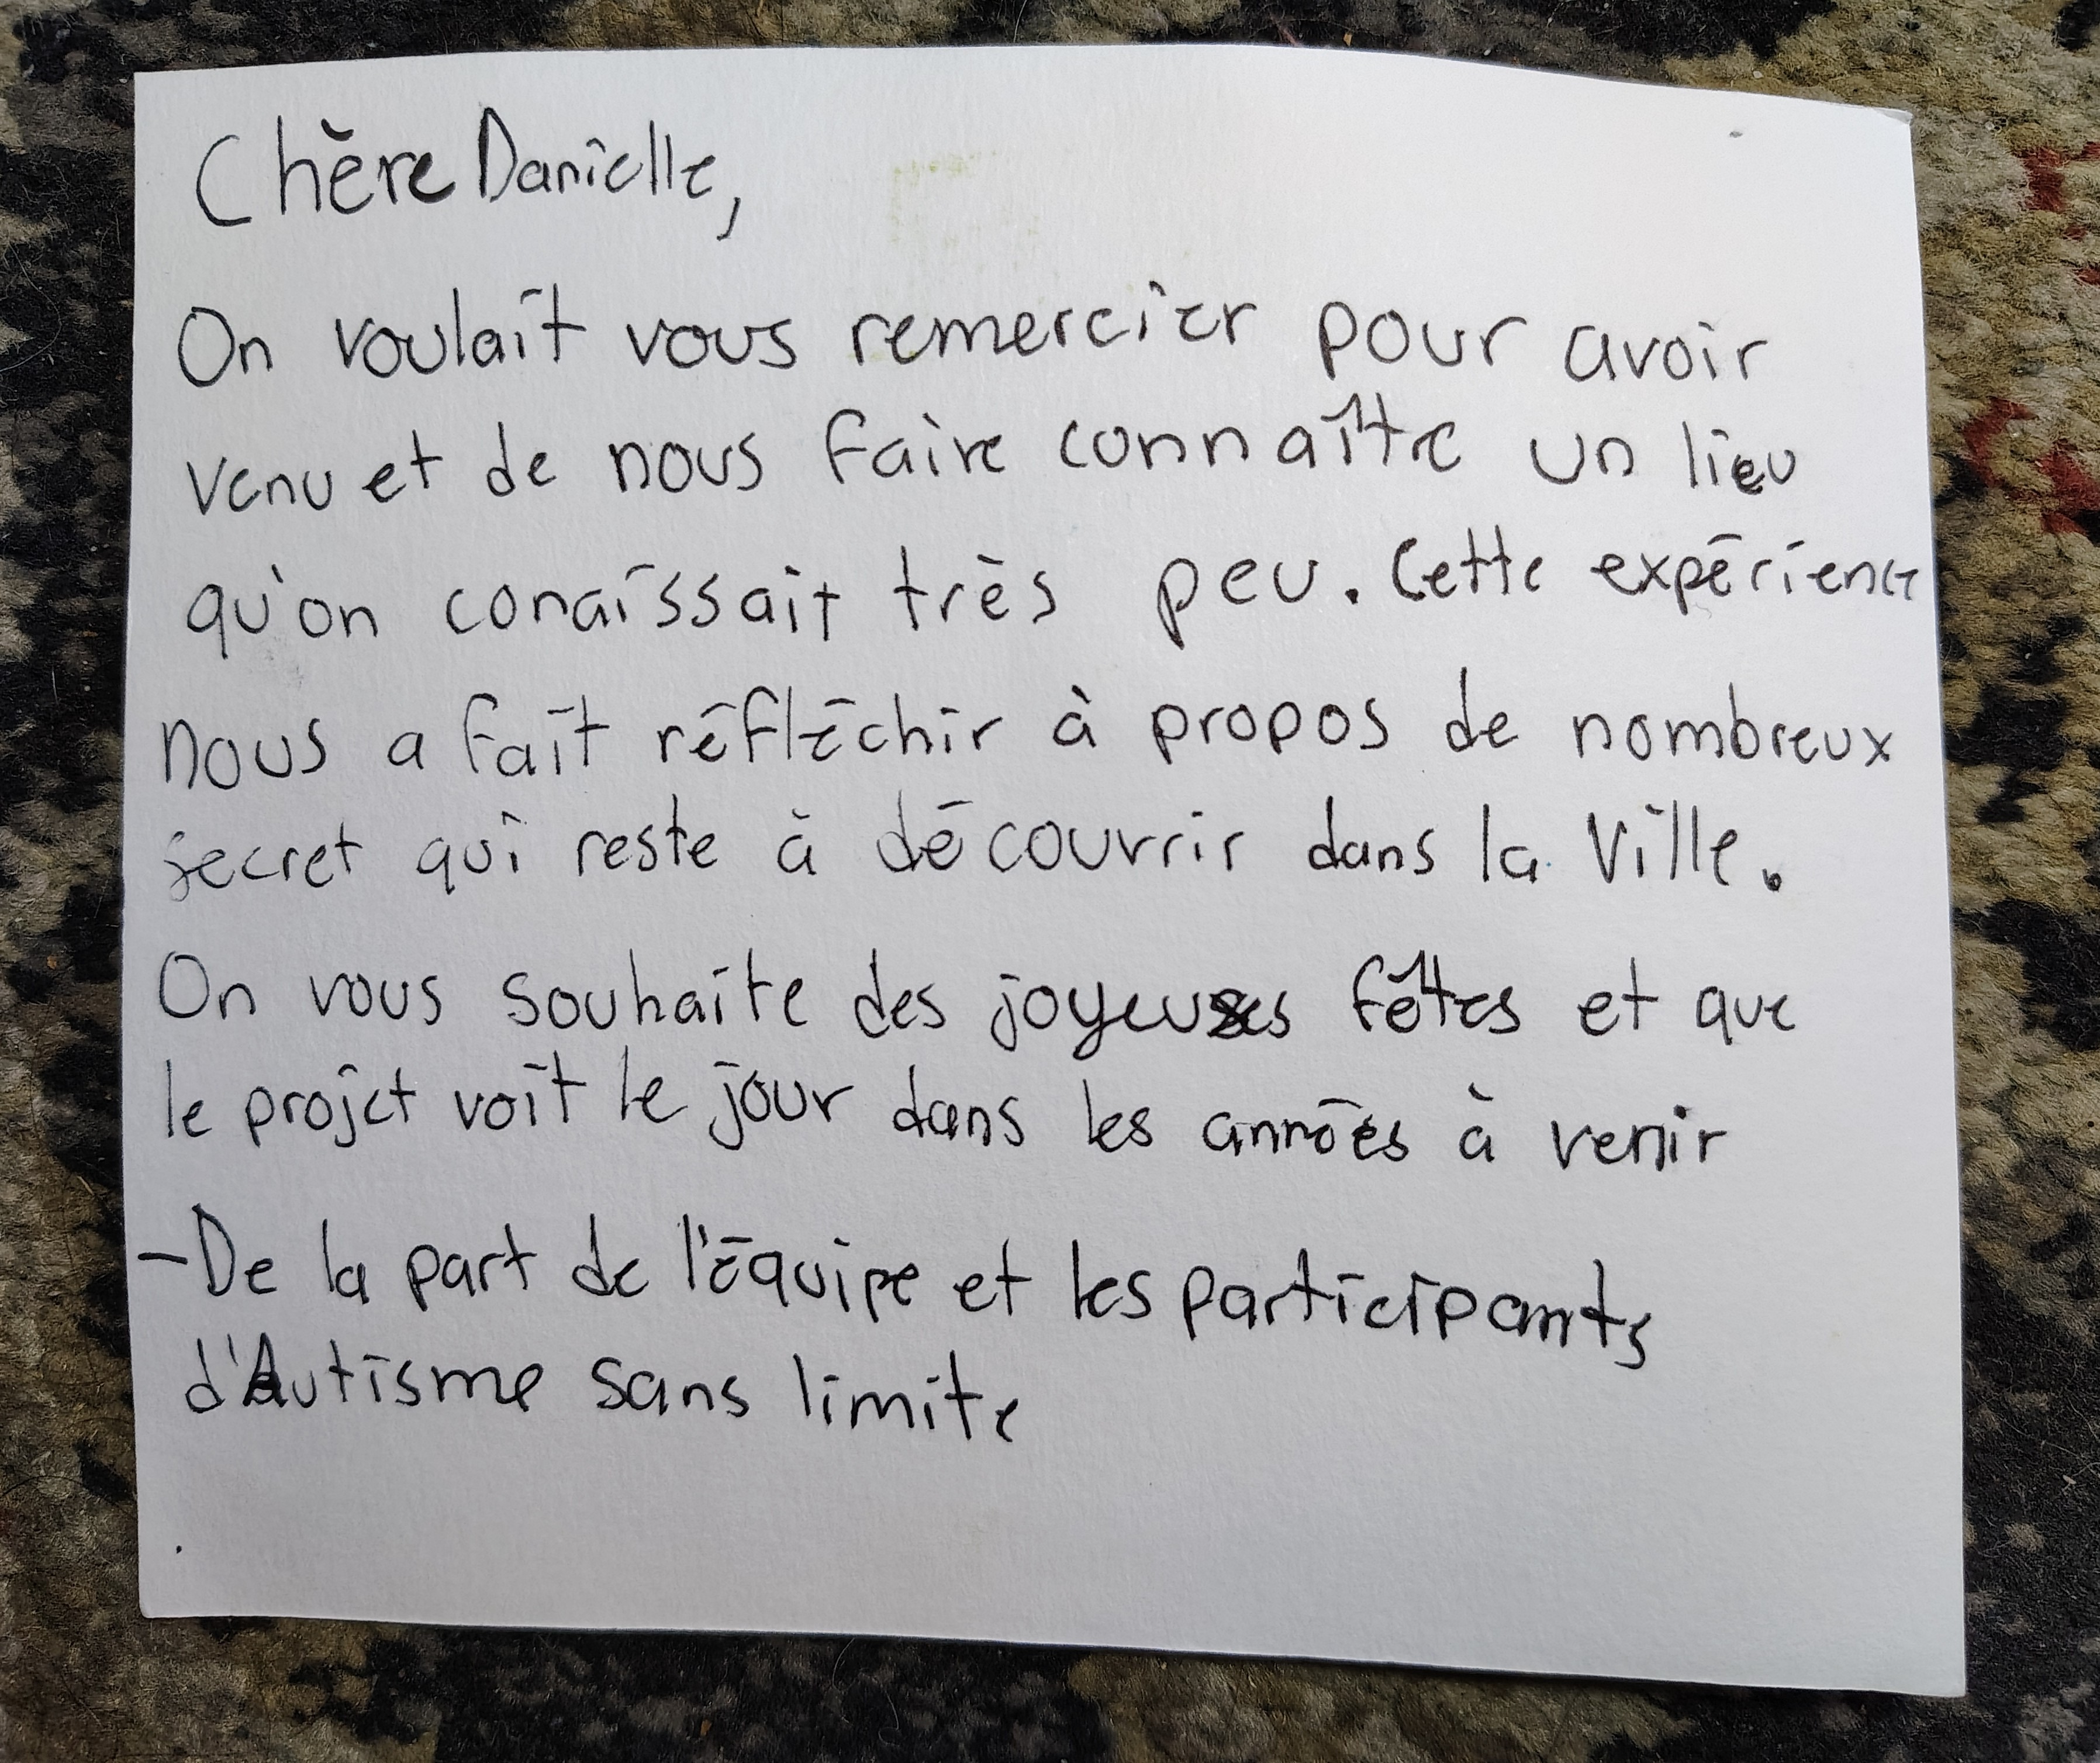 Chère Danielle,
On voulait vous remercier pour avoir
venu et de nous faire connaître un lieu
qu'on conaissait très peu. Cette expérience
nous a fait réfléchir à propos de nombreux
secret qui reste à découvrir dans la Ville.
On vous souhaite des joyeuses fêtes et que
le projet voit le jour dans les années à venir
-De la part de l'équipe et les participants
d'Autisme sans limite